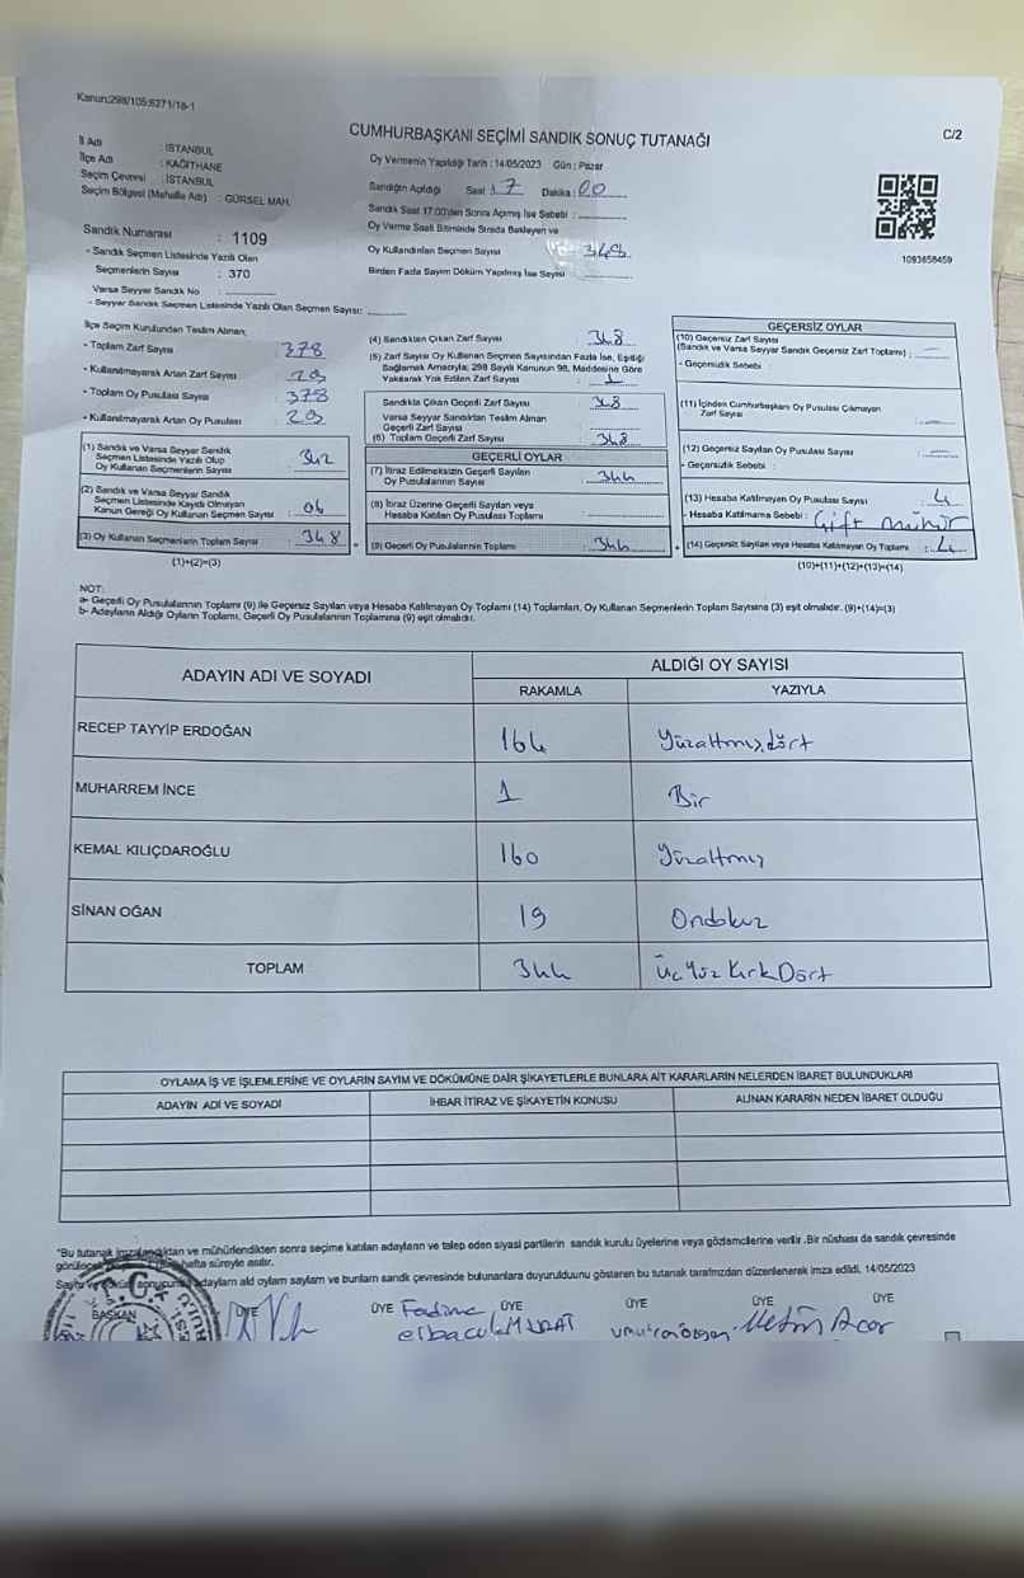 Kanun:298/105;6271/18-1
CUMHURBAŞKANI SEÇİMİ SANDIK SONUÇ TUTANAĞI
C/2
İl Adı : İSTANBUL
İlçe Adı : KAĞITHANE
Seçim Çevresi : İSTANBUL
Seçim Bölgesi (Mahalle Adı) : GÜRSEL MAH.
Oy Vermenin Yapıldığı Tarih : 14/05/2023 Gün : Pazar
Sandığın Açıldığı Saat 17 Dakika : 00
Sandık Saat 17:00'den Sonra Açılmış İse Sebebi :
Oy Verme Saati Bitiminde Sırada Bekleyen ve
Oy Kullandırılan Seçmen Sayısı 348
Birden Fazla Sayım Döküm Yapılmış İse Sayısı
1093658459
Sandık Numarası : 1109
- Sandık Seçmen Listesinde Yazılı Olan
Seçmenlerin Sayısı : 370
Varsa Seyyar Sandık No :
- Seyyar Sandık Seçmen Listesinde Yazılı Olan Seçmen Sayısı:
İlçe Seçim Kurulundan Teslim Alınan;
- Toplam Zarf Sayısı : 378
- Kullanılmayarak Artan Zarf Sayısı : 29
- Toplam Oy Pusulası Sayısı : 378
- Kullanılmayarak Artan Oy Pusulası : 29
(1) Sandık ve Varsa Seyyar Sandık
Seçmen Listesinde Yazılı Olup
Oy Kullanan Seçmenlerin Sayısı : 342
(2) Sandık ve Varsa Seyyar Sandık
Seçmen Listesinde Kayıtlı Olmayan
Kanun Gereği Oy Kullanan Seçmen Sayısı : 06
(3) Oy Kullanan Seçmenlerin Toplam Sayısı : 348
(1)+(2)=(3)
(4) Sandıktan Çıkan Zarf Sayısı : 348
(5) Zarf Sayısı Oy Kullanan Seçmen Sayısından Fazla İse, Eşitliği
Sağlamak Amacıyla; 298 Sayılı Kanunun 98. Maddesine Göre
Yakılarak Yok Edilen Zarf Sayısı : 1
Sandıkta Çıkan Geçerli Zarf Sayısı
Varsa Seyyar Sandıktan Teslim Alınan
Geçerli Zarf Sayısı
(6) Toplam Geçerli Zarf Sayısı : 348
GEÇERLİ OYLAR
(7) İtiraz Edilmeksizin Geçerli Sayılan
Oy Pusulalarının Sayısı : 344
(8) İtiraz Üzerine Geçerli Sayılan veya
Hesaba Katılan Oy Pusulası Toplamı
(9) Geçerli Oy Pusulalarının Toplamı : 344
GEÇERSİZ OYLAR
(10) Geçersiz Zarf Sayısı
(Sandık ve Varsa Seyyar Sandık Geçersiz Zarf Toplamı) :
- Geçersizlik Sebebi :
(11) İçinden Cumhurbaşkanı Oy Pusulası Çıkmayan
Zarf Sayısı :
(12) Geçersiz Sayılan Oy Pusulası Sayısı :
- Geçersizlik Sebebi :
(13) Hesaba Katılmayan Oy Pusulası Sayısı : 4
- Hesaba Katılmama Sebebi : Çift mühür
(14) Geçersiz Sayılan veya Hesaba Katılmayan Oy Toplamı : 4
(10)+(11)+(12)+(13)=(14)
NOT:
a- Geçerli Oy Pusulalarının Toplamı (9) ile Geçersiz Sayılan veya Hesaba Katılmayan Oy Toplamı (14) Toplamları, Oy Kullanan Seçmenlerin Toplam Sayısına (3) eşit olmalıdır. (9)+(14)=(3)
b- Adayların Aldığı Oyların Toplamı, Geçerli Oy Pusulalarının Toplamına (9) eşit olmalıdır.
ADAYIN ADI VE SOYADI
ALDIĞI OY SAYISI
RAKAMLA YAZIYLA
RECEP TAYYİP ERDOĞAN 164 Yüzaltmışdört
MUHARREM İNCE 1 Bir
KEMAL KILIÇDAROĞLU 160 Yüzaltmış
SİNAN OĞAN 19 Ondokuz
TOPLAM 344 Üç Yüz Kırk Dört
OYLAMA İŞ VE İŞLEMLERİNE VE OYLARIN SAYIM VE DÖKÜMÜNE DAİR ŞİKAYETLERLE BUNLARA AİT KARARLARIN NELERDEN İBARET BULUNDUKLARI
ADAYIN ADI VE SOYADI İHBAR İTİRAZ VE ŞİKAYETİN KONUSU ALINAN KARARIN NEDEN İBARET OLDUĞU
*Bu tutanak imzalandıktan ve mühürlendikten sonra seçime katılan adayların ve talep eden siyasi partilerin sandık kurulu üyelerine veya gözlemcilerine verilir. Bir nüshası da sandık çevresinde
görülecek hafta süreyle asılır.
sonucunda adayların ad oyların sayıları ve bunların sandık çevresinde bulunanlara duyurulduunu gösteren bu tutanak tarafımızdan düzenlenerek imza edildi. 14/05/2023
BAŞKAN ÜYE ÜYE ÜYE ÜYE ÜYE ÜYE
Fadime
MURAT Metin Acar